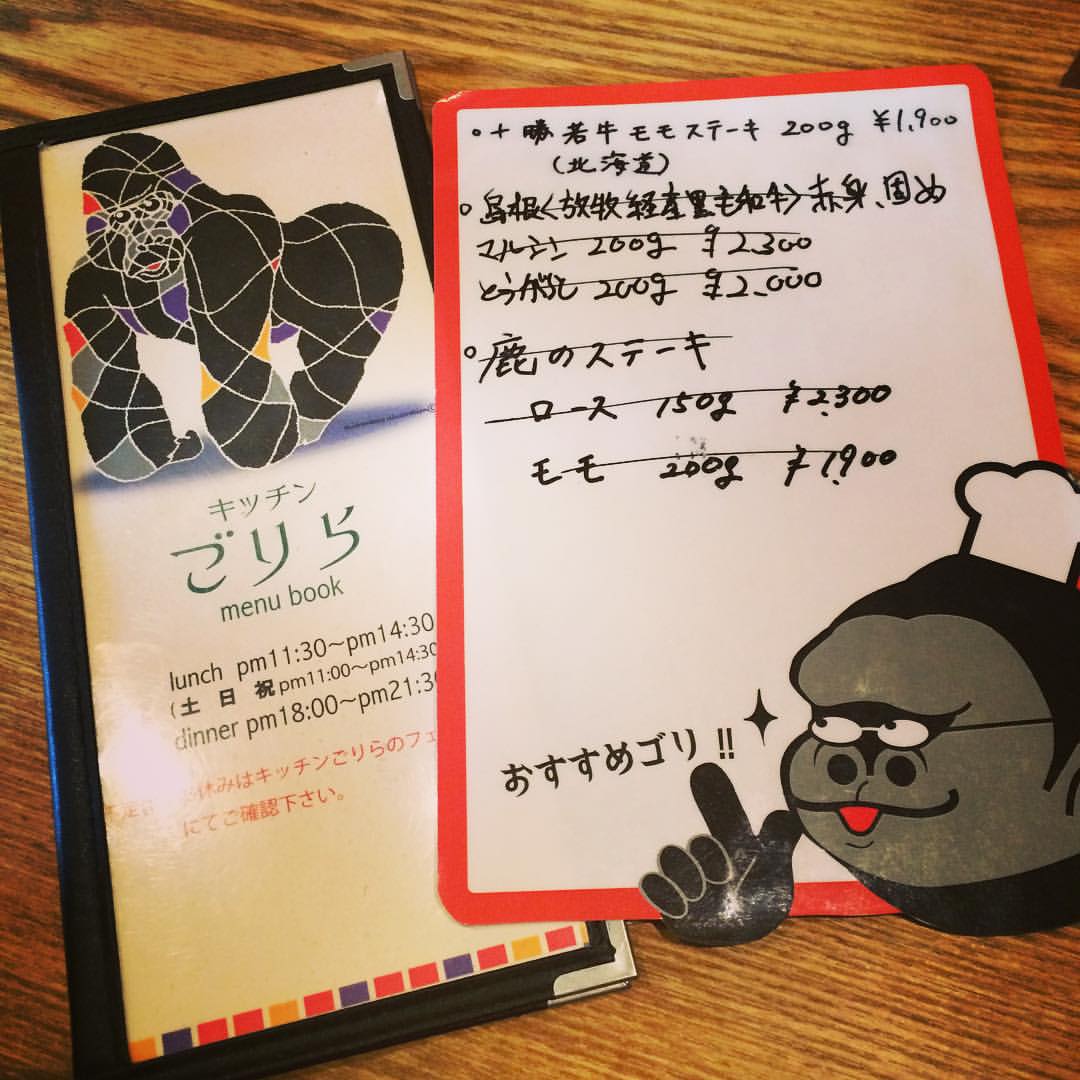 キッチン
ごりら
menu book
lunch pm11:30〜pm14:30
(土 日 祝 pm11:00〜pm14:30
dinner pm18:00〜pm21:30
休みはキッチンごりらのフェ
にてご確認下さい。
○十勝若牛モモステーキ 200g ¥1,900
(北海道)
○島根〈放牧経産黒毛和牛〉赤身、固め
マルシン 200g ¥2,300
とうがらし 200g ¥2,000
○鹿のステーキ
ロース 150g ¥2,300
モモ 200g ¥1,900
おすすめゴリ!!